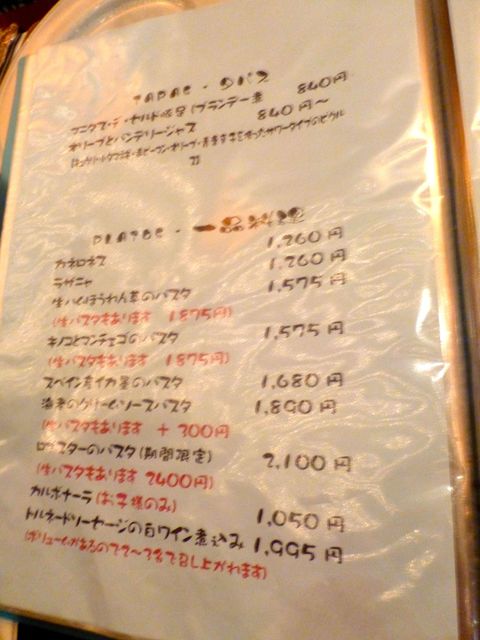 TAPAS・タパス
840円
オリーブとバンデリージャス 840円〜
PLATOS・一品料理
カネロネス 1,260円
ラザニャ 1,260円
生ハムとほうれん草のパスタ 1,575円
(生パスタもあります 1875円)
キノコとマンチェゴのパスタ 1,575円
(生パスタもあります 1875円)
スペイン産イカ墨のパスタ 1,680円
海老のクリームソースパスタ 1,890円
(生パスタもあります +300円
ロブスターのパスタ(期間限定) 2,100円
(生パスタもあります 2400円)
カルボナーラ(お子様のみ) 1,050円
トルネードソーセージの白ワイン煮込み 1,995円
(ボリュームがあるので2〜3名で召し上がれます)